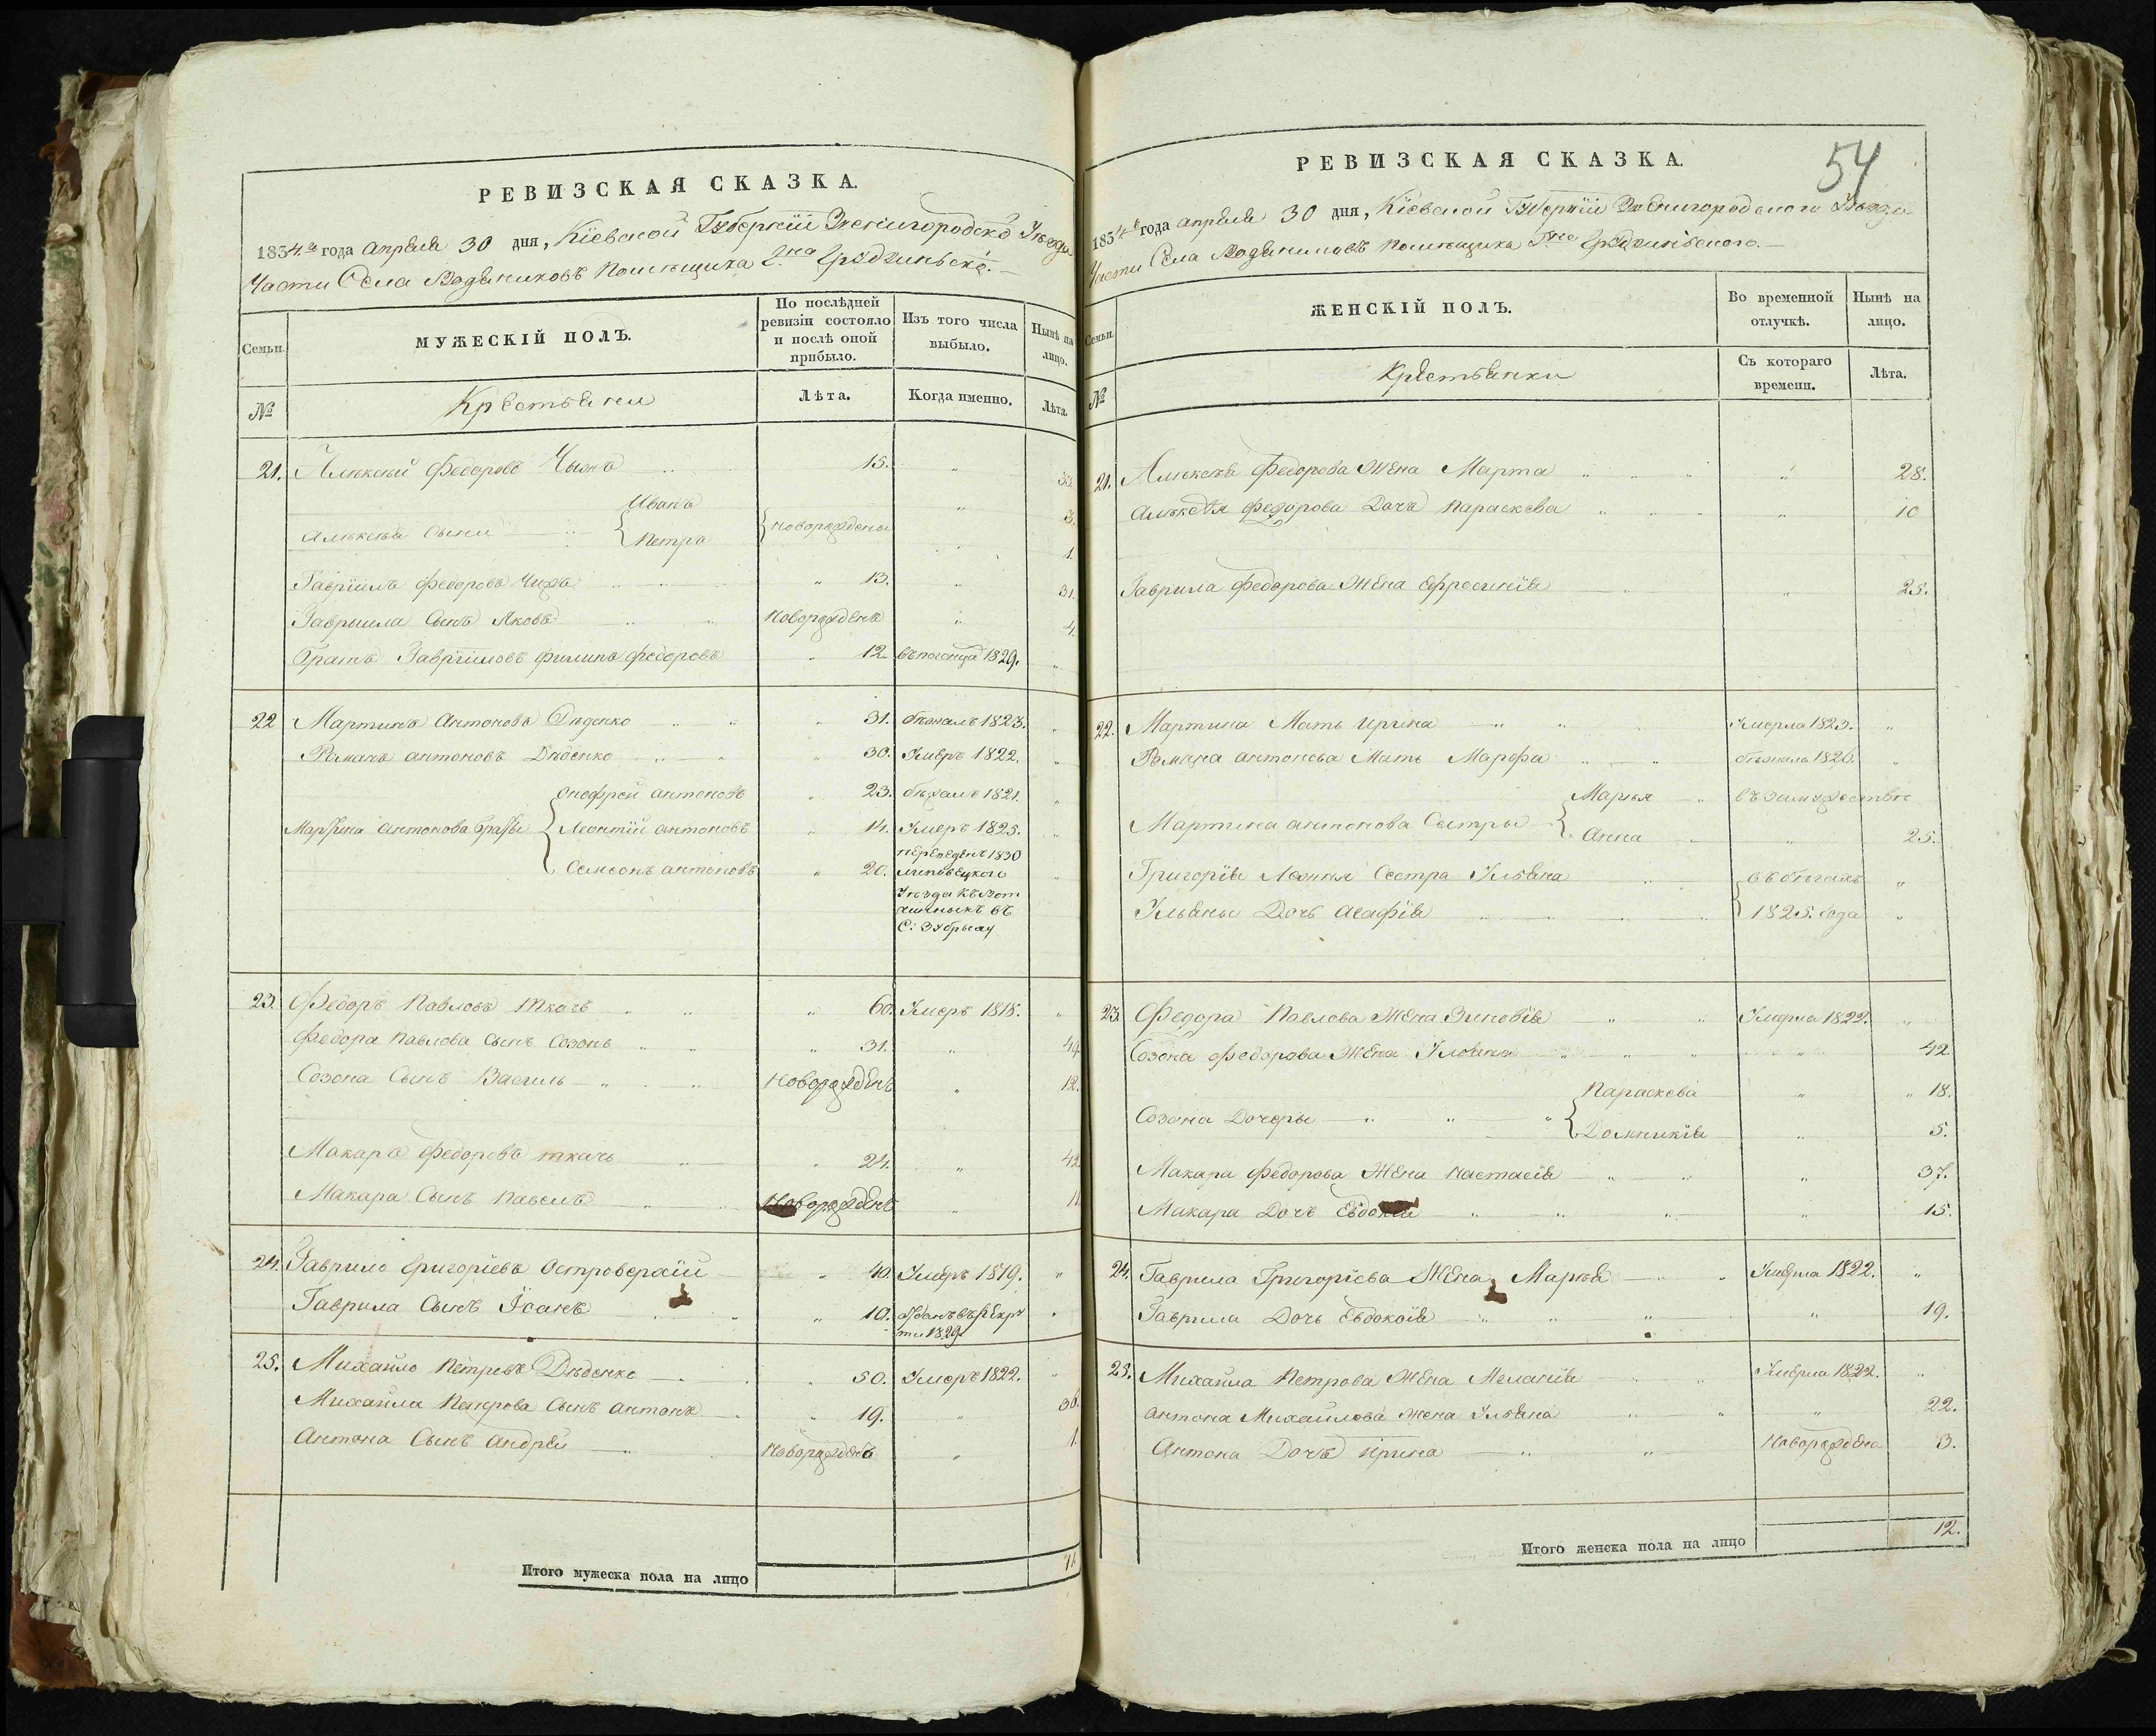 РЕВИЗСКАЯ СКАЗКА.
1834го года Апреля 30 дня, Кіевской Губерніи Звенигородско Уезда
Части Села Водяниковъ Помещика Гна
Семьи.
МУЖЕСКІЙ ПОЛЪ.
По послѣдней ревизіи состояло и послѣ оной прибыло.
Изъ того числа выбыло.
Нынѣ на лицо.
№
Крестьяни
Лѣта.
Когда именно.
Лѣта.
21. Алексей Федоровъ 15. 33.
Алексея Сыни { Иванъ Новорождены 3.
Петро 1.
Гавріилъ Федоровъ 13. 31.
Гаврыила Сынъ Яковъ Новорожденъ 4.
Братъ Гавріиловъ Филипъ Федоровъ 12 1829.
22 Мартинъ Антоновъ Дяденко 31. бежалъ 1823.
Романъ Антоновъ Дяденко 30. Умеръ 1822.
Мартина Антонова Браты { Онофрей Антоновъ 23. бежалъ 1821.
Леонтій Антоновъ 14. Умеръ 1825.
Самсонъ Антоновъ 20. переведенъ 1830
Липовецкого
Уезда
въ
С:
23. Федоръ Павловъ Ткачъ 60. Умеръ 1818.
Федора Павлова Сынъ Созонъ 31. 49.
Созона Сынъ Василь Новорожденъ 12.
Макаръ Федоровъ Ткачъ 24. 42
Макара Сынъ Павелъ Новорожденъ 11.
24. Гаврило Григоріевъ Островерхій 40. Умеръ 1819.
Гаврила Сынъ Іванъ 10. отданъ въ Рекру
ти 1829.
25. Михайло Петровъ Дяденко 50. Умеръ 1822.
Михайла Петрова Сынъ Антонъ 19. 36.
Антона Сынъ Андрей Новорожденъ 1.
Итого мужеска пола на лицо 11.
54
РЕВИЗСКАЯ СКАЗКА.
1834го года Апреля 30 дня, Кіевской Губерніи Звенигородского Уезда
Части Села Водяниковъ Помещика Гна
Семьи.
ЖЕНСКІЙ ПОЛЪ.
Во временной отлучкѣ.
Нынѣ на лицо.
№
Крестьянки
Съ котораго времени.
Лѣта.
21. Алексея Федорова Жена Марта 28.
Алексея Федорова Дочь Параскева 10
Гаврила Федорова Жена Ефросинія 25.
22. Мартина Мать Ирина Умерла 1823.
Романа Антонова Мать Марфа бежала 1826.
Мартина Антонова Сестры { Марья въ замужестве
Анна 25.
Григорія Леонтія Сестра Ульяна { въ бегахъ
Ульяны Дочь Агафія 1825. года
23. Федора Павлова Жена Зиновія Умерла 1822.
Созона Федорова Жена Ульяна 42
Созона Дочеры { Параскева 18.
Домникія 5.
Макара Федорова Жена Настасія 37.
Макара Дочь Евдокія 15.
24. Гаврила Григоріева Жена Марья Умерла 1822.
Гаврила Дочь Евдокія 19.
25. Михайла Петрова Жена Меланія Умерла 1822.
Антона Михайлова Жена Ульяна 22.
Антона Дочь Ирина Новорождена 3.
Итого женска пола на лицо 12.